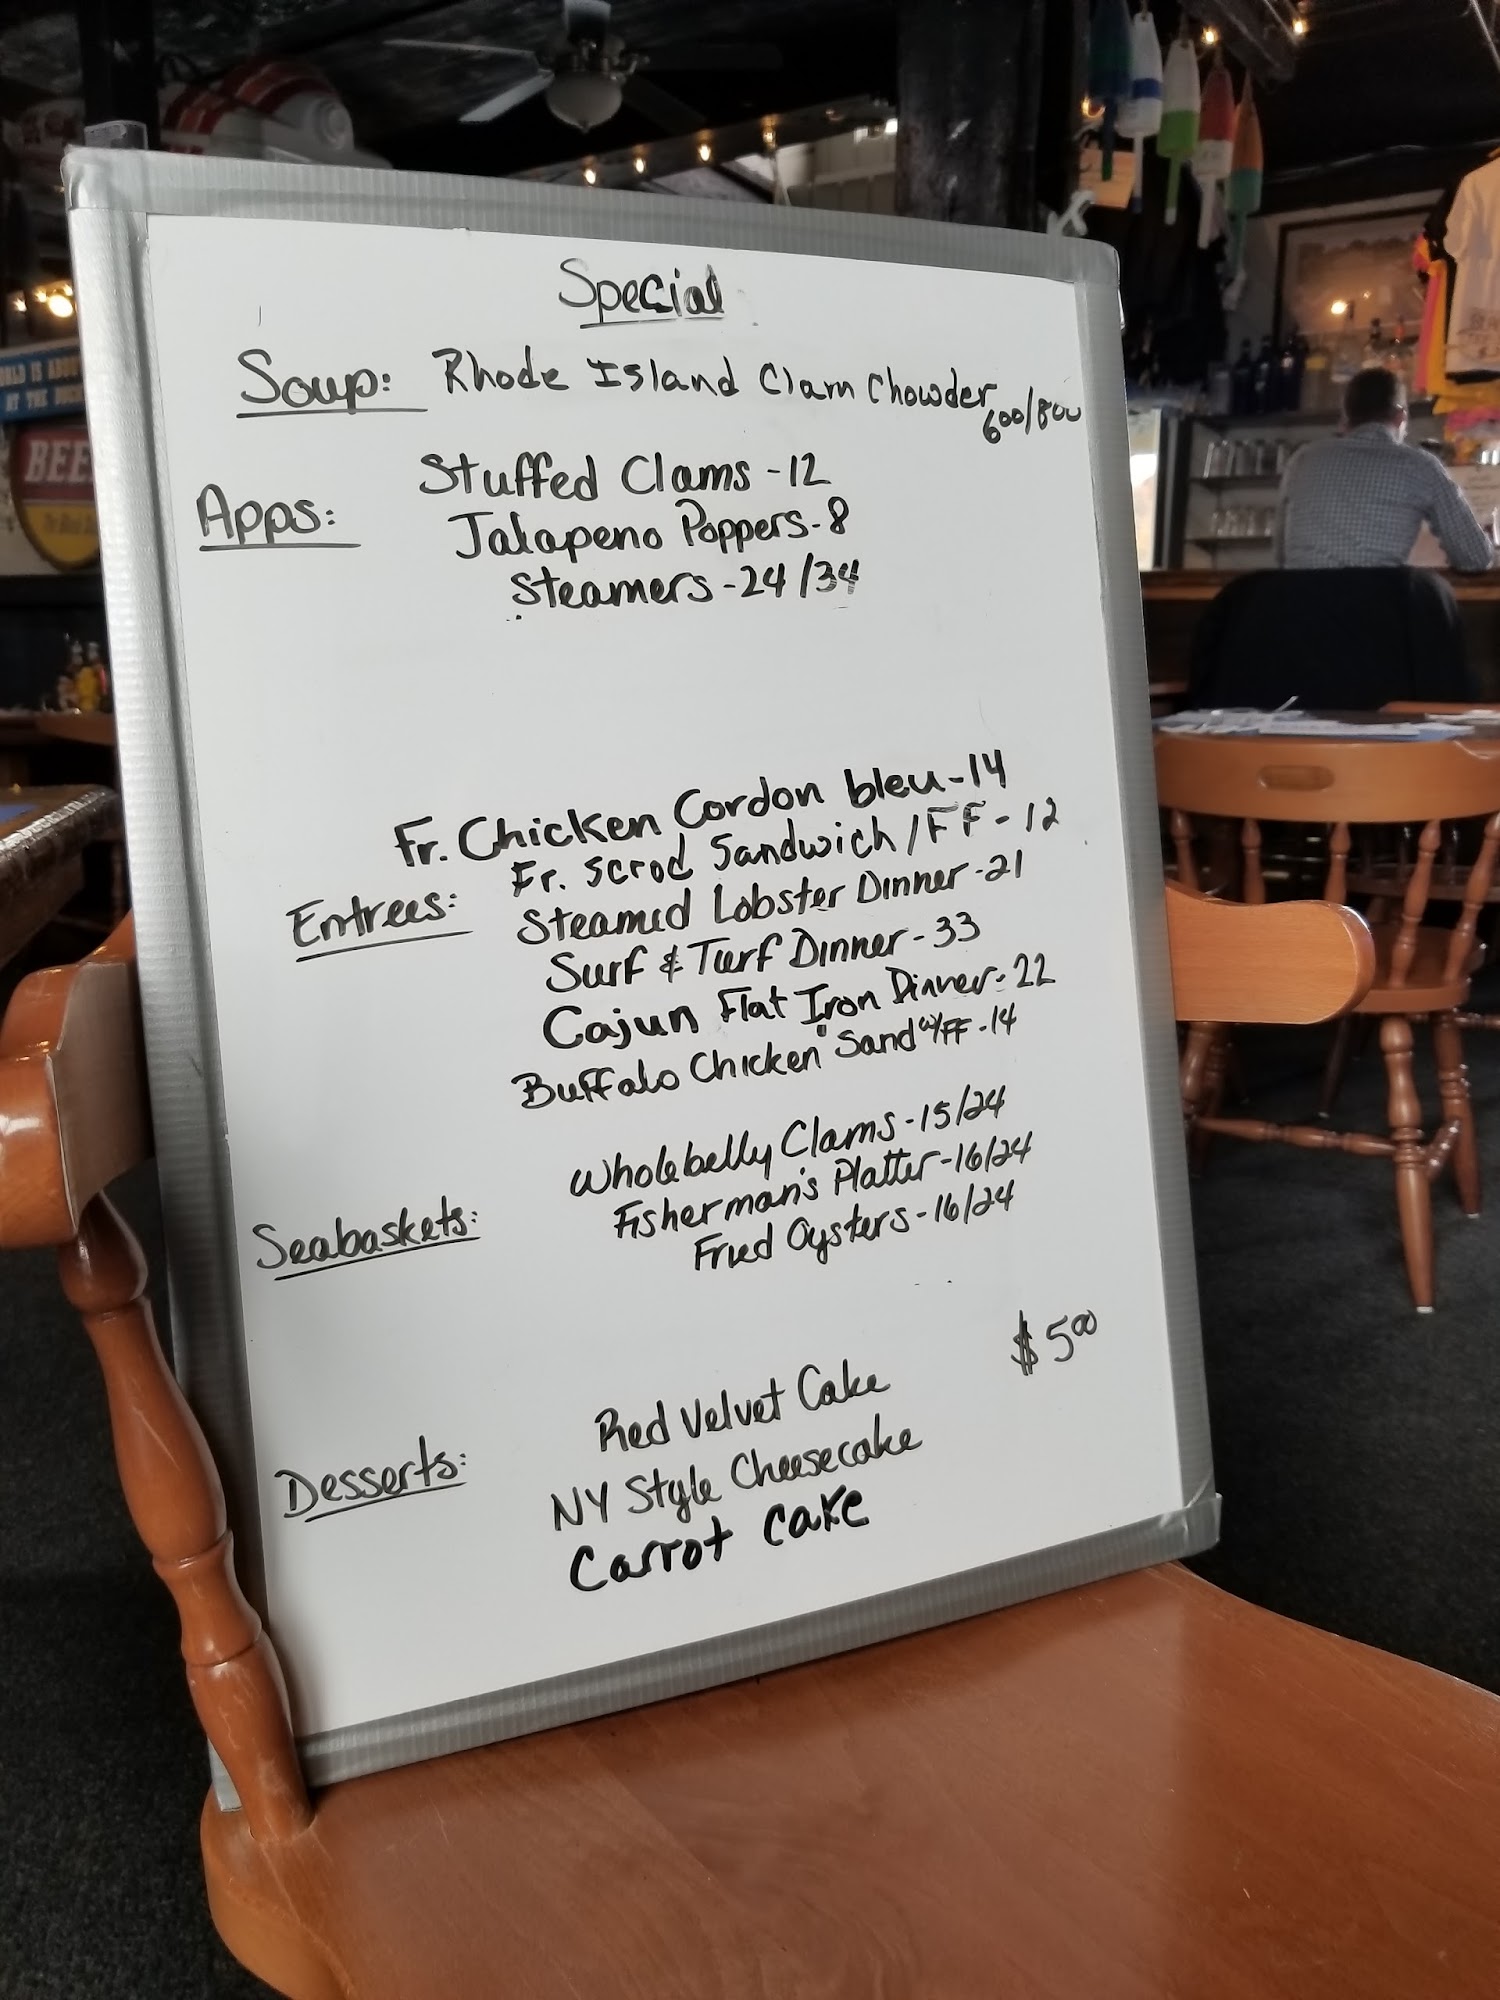 Special
Soup: Rhode Island Clam Chowder 600/800
Stuffed Clams - 12
Apps:
Jalapeno Poppers - 8
Steamers - 24/34
Fr. Chicken Cordon bleu - 14
Fr. Scrod Sandwich / FF - 12
Entrees:
Steamed Lobster Dinner - 21
Surf & Turf Dinner - 33
Cajun Flat Iron Dinner - 22
Buffalo Chicken Sand w/FF - 14
Wholebelly Clams - 15/24
Fisherman's Platter - 16/24
Seabaskets:
Fried Oysters - 16/24
$ 500
Red Velvet Cake
Desserts:
NY Style Cheesecake
Carrot Cake
AT THE
BEE